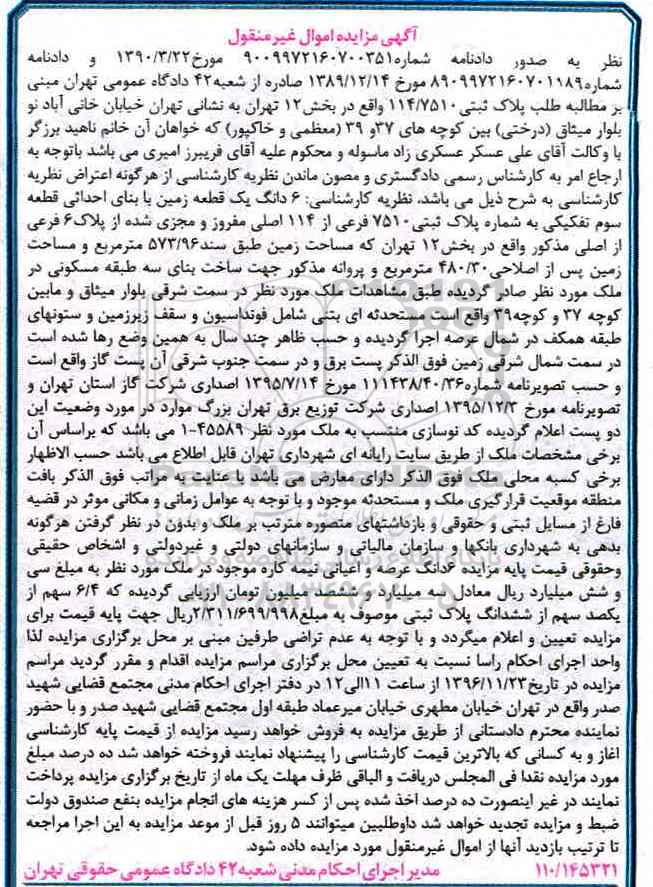 آگهی مزایده اموال غیرمنقول
نظر به صدور دادنامه شماره۹۰۰۹۹۷۲۱۶۰۷۰۰۳۵۱ مورخ۱۳۹۰/۳/۲۲ و دادنامه
شماره۸۹۰۹۹۷۲۱۶۰۷۰۱۱۸۹ مورخ ۱۳۸۹/۱۲/۱۴ صادره از شعبه۴۲ دادگاه عمومی تهران مبنی
بر مطالبه طلب پلاک ثبتی۱۱۴/۷۵۱۰ واقع در بخش۱۲ تهران به نشانی تهران خیابان خانی آباد نو
بلوار میثاق (درختی) بین کوچه های ۳۷و ۳۹ (معظمی و خاکپور) که خواهان آن خانم ناهید برزگر
با وکالت آقای علی عسکر عسکری زاد ماسوله و محکوم علیه آقای فریبرز امیری می باشد باتوجه به
ارجاع امر به کارشناس رسمی دادگستری و مصون ماندن نظریه کارشناسی از هرگونه اعتراض نظریه
کارشناسی به شرح ذیل می باشد، نظریه کارشناسی: ۶ دانگ یک قطعه زمین با بنای احداثی قطعه
سوم تفکیکی به شماره پلاک ثبتی۷۵۱۰ فرعی از ۱۱۴ اصلی مفروز و مجزی شده از پلاک۶ فرعی
از اصلی مذکور واقع در بخش۱۲ تهران که مساحت زمین طبق سند۵۷۳/۹۶ مترمربع و مساحت
زمین پس از اصلاحی۴۸۰/۳۰ مترمربع و پروانه مذکور جهت ساخت بنای سه طبقه مسکونی در
ملک مورد نظر صادر گردیده طبق مشاهدات ملک مورد نظر در سمت شرقی بلوار میثاق و مابین
کوچه ۳۷ و کوچه۳۹ واقع است مستحدثه ای بتنی شامل فونداسیون و سقف زیرزمین و ستونهای
طبقه همکف در شمال عرصه اجرا گردیده و حسب ظاهر چند سال به همین وضع رها شده است
در سمت شمال شرقی زمین فوق الذکر پست برق و در سمت جنوب شرقی آن پست گاز واقع است
و حسب تصویرنامه شماره۱۱۱۴۳۸/۴۰/۳۶ مورخ ۱۳۹۵/۷/۱۴ اصداری شرکت گاز استان تهران و
تصویرنامه مورخ ۱۳۹۵/۱۲/۳ اصداری شرکت توزیع برق تهران بزرگ موارد در مورد وضعیت این
دو پست اعلام گردیده کد نوسازی منتسب به ملک مورد نظر ۴۵۵۸۹-۱ می باشد که براساس آن
برخی مشخصات ملک از طریق سایت رایانه ای شهرداری تهران قابل اطلاع می باشد حسب الاظهار
برخی کسبه محلی ملک فوق الذکر دارای معارض می باشد با عنایت به مراتب فوق الذکر بافت
منطقه موقعیت قرارگیری ملک و مستحدثه موجود و با توجه به عوامل زمانی و مکانی موثر در قضیه
فارغ از مسایل ثبتی و حقوقی و بازداشتهای متصوره مترتب بر ملک و بدون در نظر گرفتن هرگونه
بدهی به شهرداری بانکها و سازمان مالیاتی و سازمانهای دولتی و غیردولتی و اشخاص حقیقی
وحقوقی قیمت پایه مزایده ۶دانگ عرصه و اعیانی نیمه کاره موجود در ملک مورد نظر به مبلغ سی
و شش میلیارد ریال معادل سه میلیارد و ششصد میلیون تومان ارزیابی گردیده که ۶/۴ سهم از
یکصد سهم از ششدانگ پلاک ثبتی موصوف به مبلغ۲/۳۱۱/۶۹۹/۹۹۸ریال جهت پایه قیمت برای
مزایده تعیین و اعلام میگردد و با توجه به عدم تراضی طرفین مبنی بر محل برگزاری مزایده لذا
واحد اجرای احکام راسا نسبت به تعیین محل برگزاری مراسم مزایده اقدام و مقرر گردید مراسم
مزایده در تاریخ۱۳۹۶/۱۱/۲۳ از ساعت ۱۱الی۱۲ در دفتر اجرای احکام مدنی مجتمع قضایی شهید
صدر واقع در تهران خیابان مطهری خیابان میرعماد طبقه اول مجتمع قضایی شهید صدر و با حضور
نماینده محترم دادستانی از طریق مزایده به فروش خواهد رسید مزایده از قیمت پایه کارشناسی
اغاز و به کسانی که بالاترین قیمت کارشناسی را پیشنهاد نمایند فروخته خواهد شد ده درصد مبلغ
مورد مزایده نقدا فی المجلس دریافت و الباقی ظرف مهلت یک ماه از تاریخ برگزاری مزایده پرداخت
نمایند در غیر اینصورت ده درصد اخذ شده پس از کسر هزینه های انجام مزایده بنفع صندوق دولت
ضبط و مزایده تجدید خواهد شد داوطلبین میتوانند ۵ روز قبل از موعد مزایده به این اجرا مراجعه
تا ترتیب بازدید آنها از اموال غیرمنقول مورد مزایده داده شود.
۱۱۰/۱۴۵۳۲۱ مدیر اجرای احکام مدنی شعبه۴۲ دادگاه عمومی حقوقی تهران